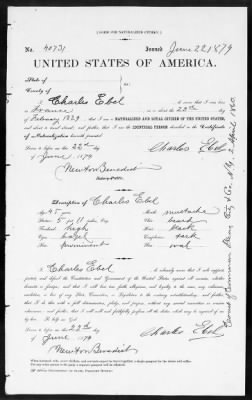 [FORM FOR NATURALIZED CITIZEN.]
No. 10731 Issued June 22 1879
UNITED STATES OF AMERICA.
State of
County of
I, Charles Ebel, do swear that I was born
in France, on or about the 22nd day
of February 1829, that I am a NATURALIZED AND LOYAL CITIZEN OF THE UNITED STATES,
and about to travel abroad; and further, that I am the IDENTICAL PERSON described in the Certificate
of Naturalization herewith presented.
Sworn to before me this 22nd day
of June 1879
Charles Ebel
Newton Benedict
Notary Public.
Description of Charles Ebel
Age: 45 years Mouth: mustache
Stature: 5 feet 11 inches, Eng. Chin: beard
Forehead: high Hair: black
Eyes: hazel Complexion: dark
Nose: prominent Face: oval
I, Charles Ebel, do solemnly swear that I will support, protect,
and defend the Constitution and Government of the United States against all enemies, whether
domestic or foreign; and that I will bear true faith, allegiance, and loyalty to the same, any ordinance,
resolution, or law of any State, Convention, or Legislature to the contrary notwithstanding; and further,
that I do this with a full determination, pledge, and purpose, without any mental reservation or evasion
whatsoever; and further, that I will well and faithfully perform all the duties which may be required of me
by law: So help me God.
Sworn to before me this 22nd day
of June 1879
Charles Ebel
Newton Benedict
Court of Common Pleas City & Co. N.Y. 2 April 1860.